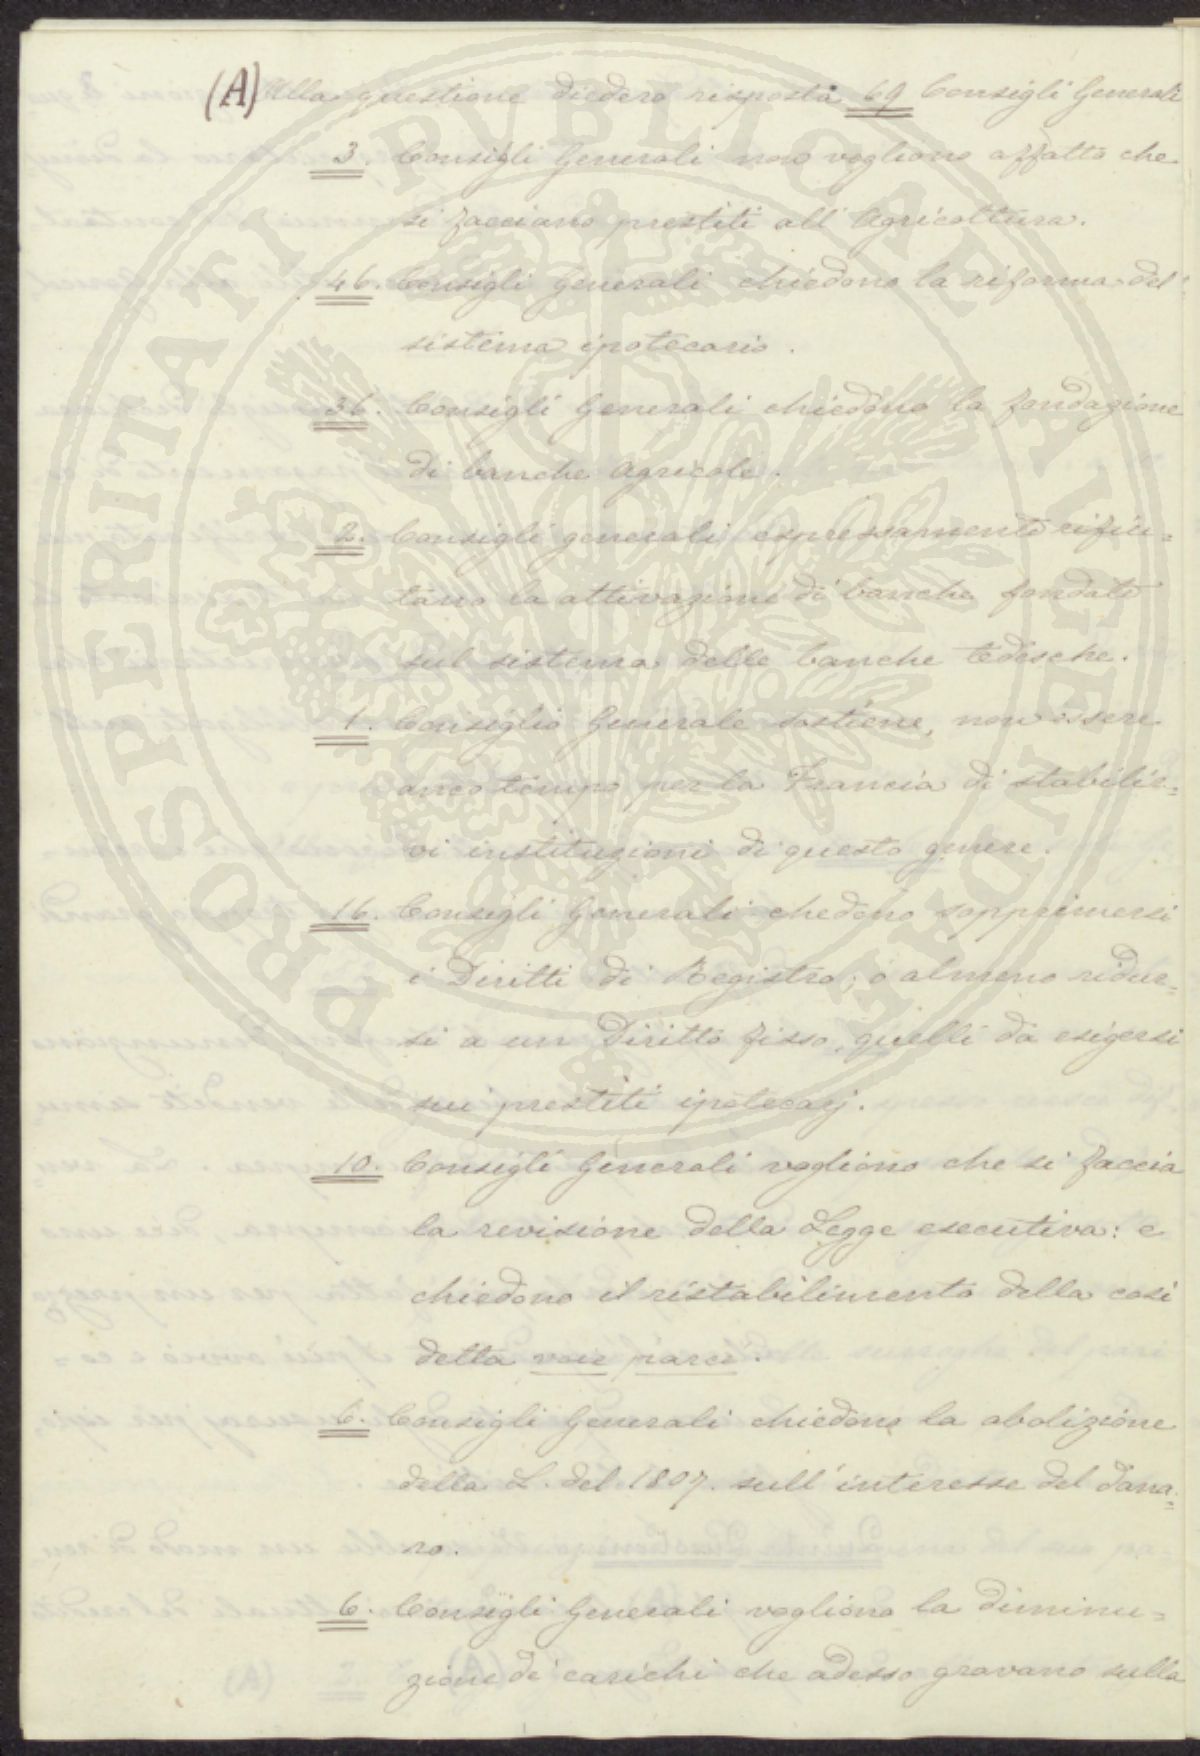 (A) Alla questione diedero risposta 69 Consigli Generali
3. Consigli Generali non vogliono affatto che
si facciano prestiti all' Agricoltura.
46. Consigli Generali chiedono la riforma del
sistema ipotecario.
36. Consigli Generali chiedono la fondazione
di banche Agricole.
2. Consigli generali espressamente rifiu=
tano la attivazione di banche fondate
sul sistema delle banche tedesche.
1. Consiglio Generale sostiene, non essere
anco tempo per la Francia di stabilir=
vi instituzioni di questo genere.
16. Consigli Generali chedono sopprimersi
i Diritti di Registro; o almeno ridur=
si a un Diritto fisso, quelli da esigersi
sui prestiti ipotecarj.
10. Consigli Generali vogliono che si faccia
la revisione della Legge esecutiva: e
chiedono il ristabilimento della così
detta voie parée.
6. Consigli Generali chiedono la abolizione
della L. del 1807. sull' interesse del dana=
ro.
6. Consigli Generali vogliono la diminu=
zione di carichi che adesso gravano sulla
PROSPERITATI PVBLICAE AVGENDAE